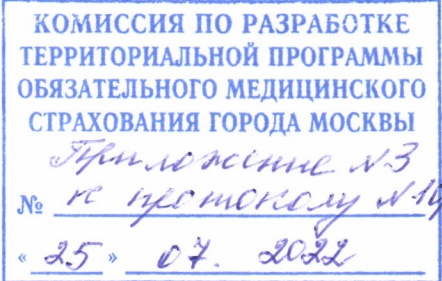 КОМИССИЯ ПО РАЗРАБОТКЕ
ТЕРРИТОРИАЛЬНОЙ ПРОГРАММЫ
ОБЯЗАТЕЛЬНОГО МЕДИЦИНСКОГО
СТРАХОВАНИЯ ГОРОДА МОСКВЫ
Приложение №3
№ к протоколу №
« 25 » 07. 2022